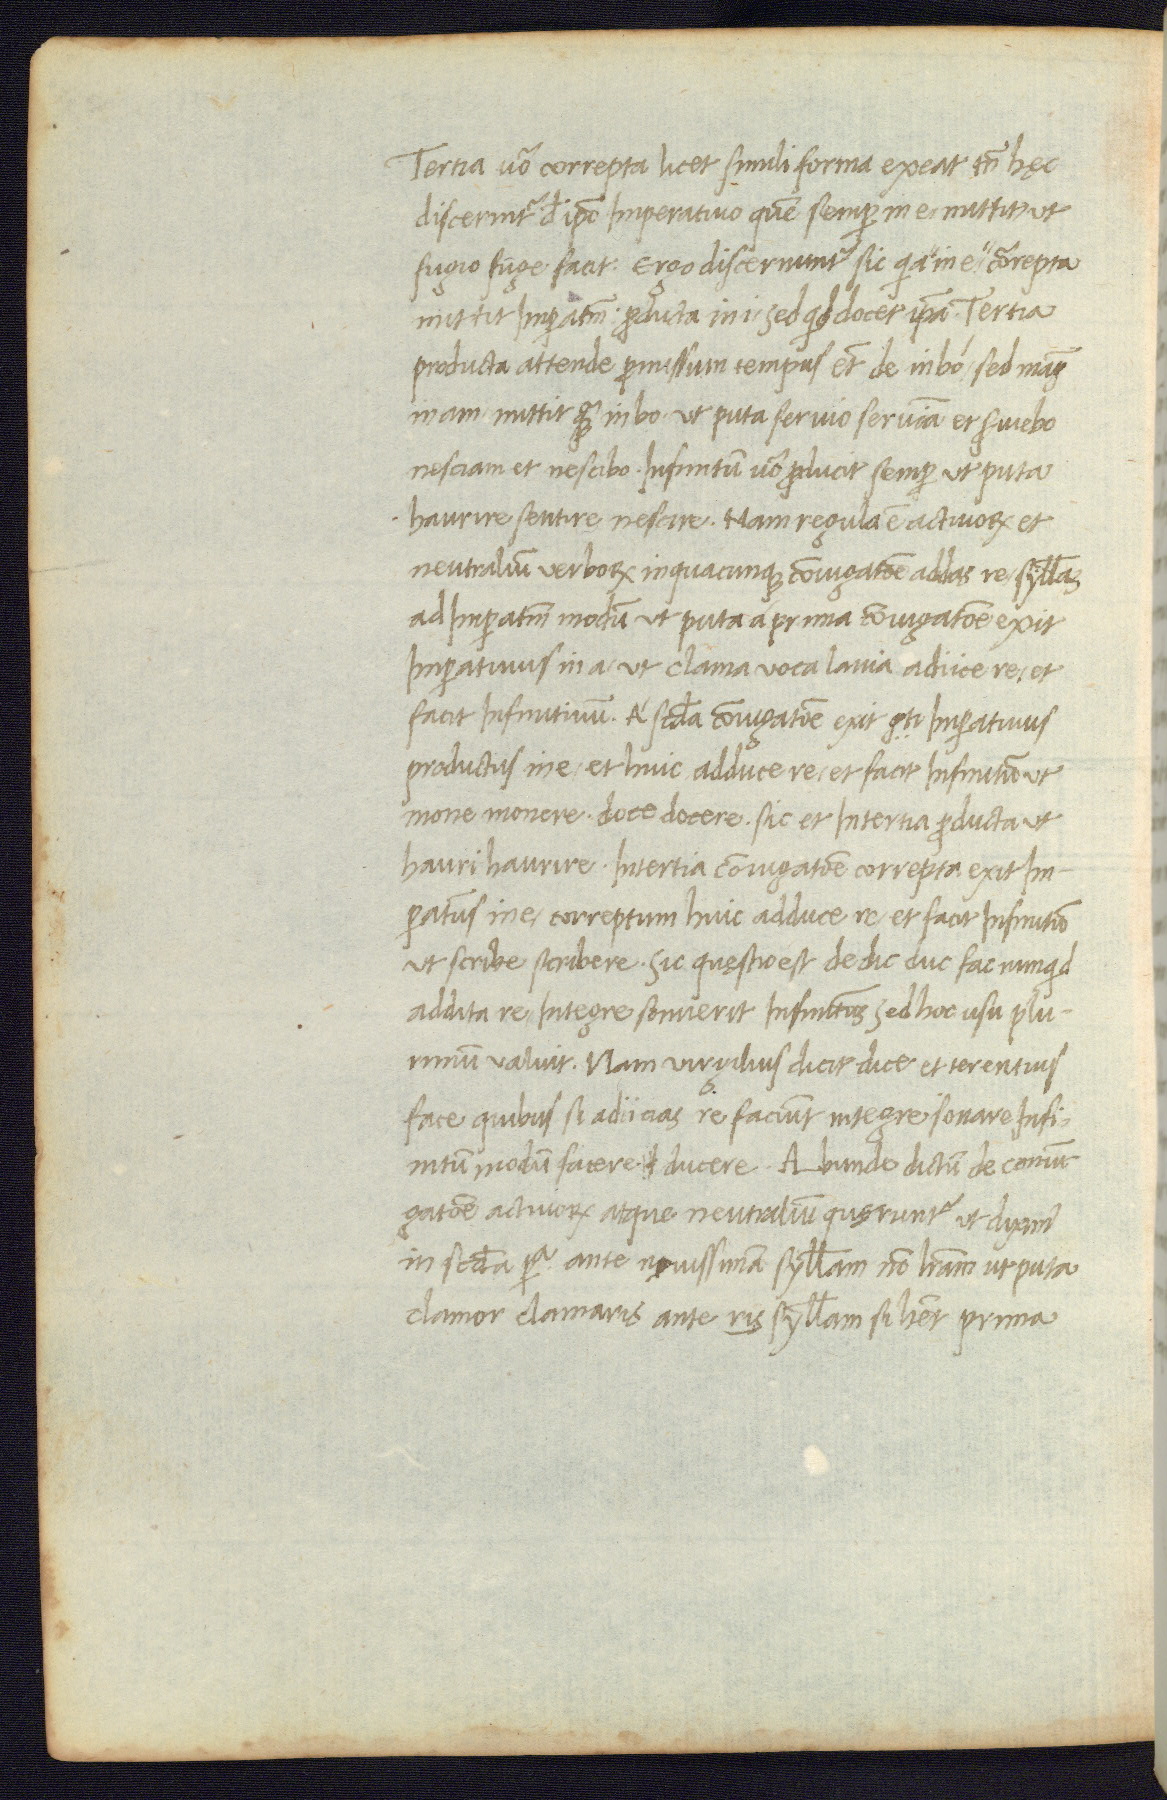 Tertia uō correpta licet simili forma exeat tn̄ hęc
discernitr̃ d ip̄o Imperatiuo quē semp̱ in e mittit ut
fugio fuge facit. Ergo discernuntr̃ sic q̇a in e cōrepta
mittit Imp̱atm̄ ꝓducta in i. Sed q̇d docet ip̄a Tertia
producta attende ꝓmissum tempus et̄ de in bo sed mag̃
in am mittit q̃ꝫ in bo ut puta seruio seruiā et ẜuiebo
nesciam et nescibo. Infinitū uō ꝓducit semp̱ ut puta
haurire sentire nescire. Nam regula ē actiuoꝝ et
neutraliū verboꝝ in quacunqꝫ cōiugatōe addas re syllas
ad Imp̱atm̄ modū ut puta a prima cōiugatōe exit
Imp̱atiuus in a ut clama voca lania adiice re et
facit Infinitiuū. A scd̄a cōiugatōe exit Imp̱atiuus
productus in e et huic adduce re et facit Infinitiō ut
mone monere. doce docere. Sic et In tertia ꝓducta ut
hauri haurire. In tertia cōiugatōe correpta exit Im-
p̱atūs in e correptum huic adduce re et facit Infinitiō
ut scribe scribere. Sic quęstio est de dic duc fac nunq̇d
addita re Integre sonuerit Infinitūs Sed hoc usu plu-
rimū valuit. Nam virgilius dicit dice et terentius
face quibus si adiicias re faciūt integre sonare Infi-
nitū modū facere ducere. Abunde dictū de coniu-
gatōe actiuoꝝ atque neutraliū quęruntr̃ ut dixim̄
in scd̄a p̱ ante nouissimā syllam nō lr̄am ut puta
clamor clamaris ante ris syllam si hēt prima